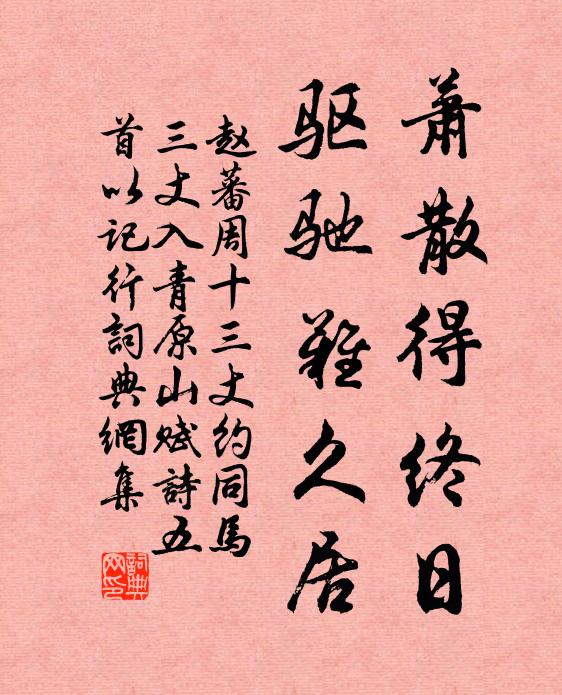 蕭散得终日
驱驰難久居
赵蕃周十三丈约同馬
三丈入青原山赋詩五
首以记行詞典網集
詞典网印